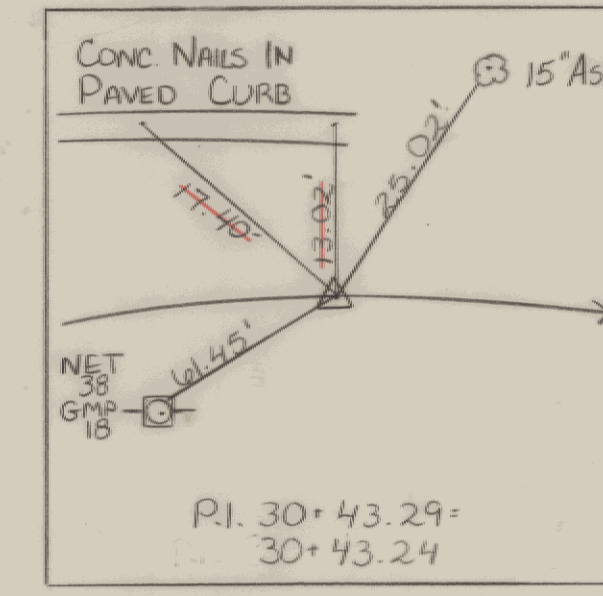 CONC. NAILS IN
PAVED CURB
15" As
25.02'
17.40'
13.02'
61.45'
NET
38
GMP
18
P.I. 30+43.29=
30+43.24